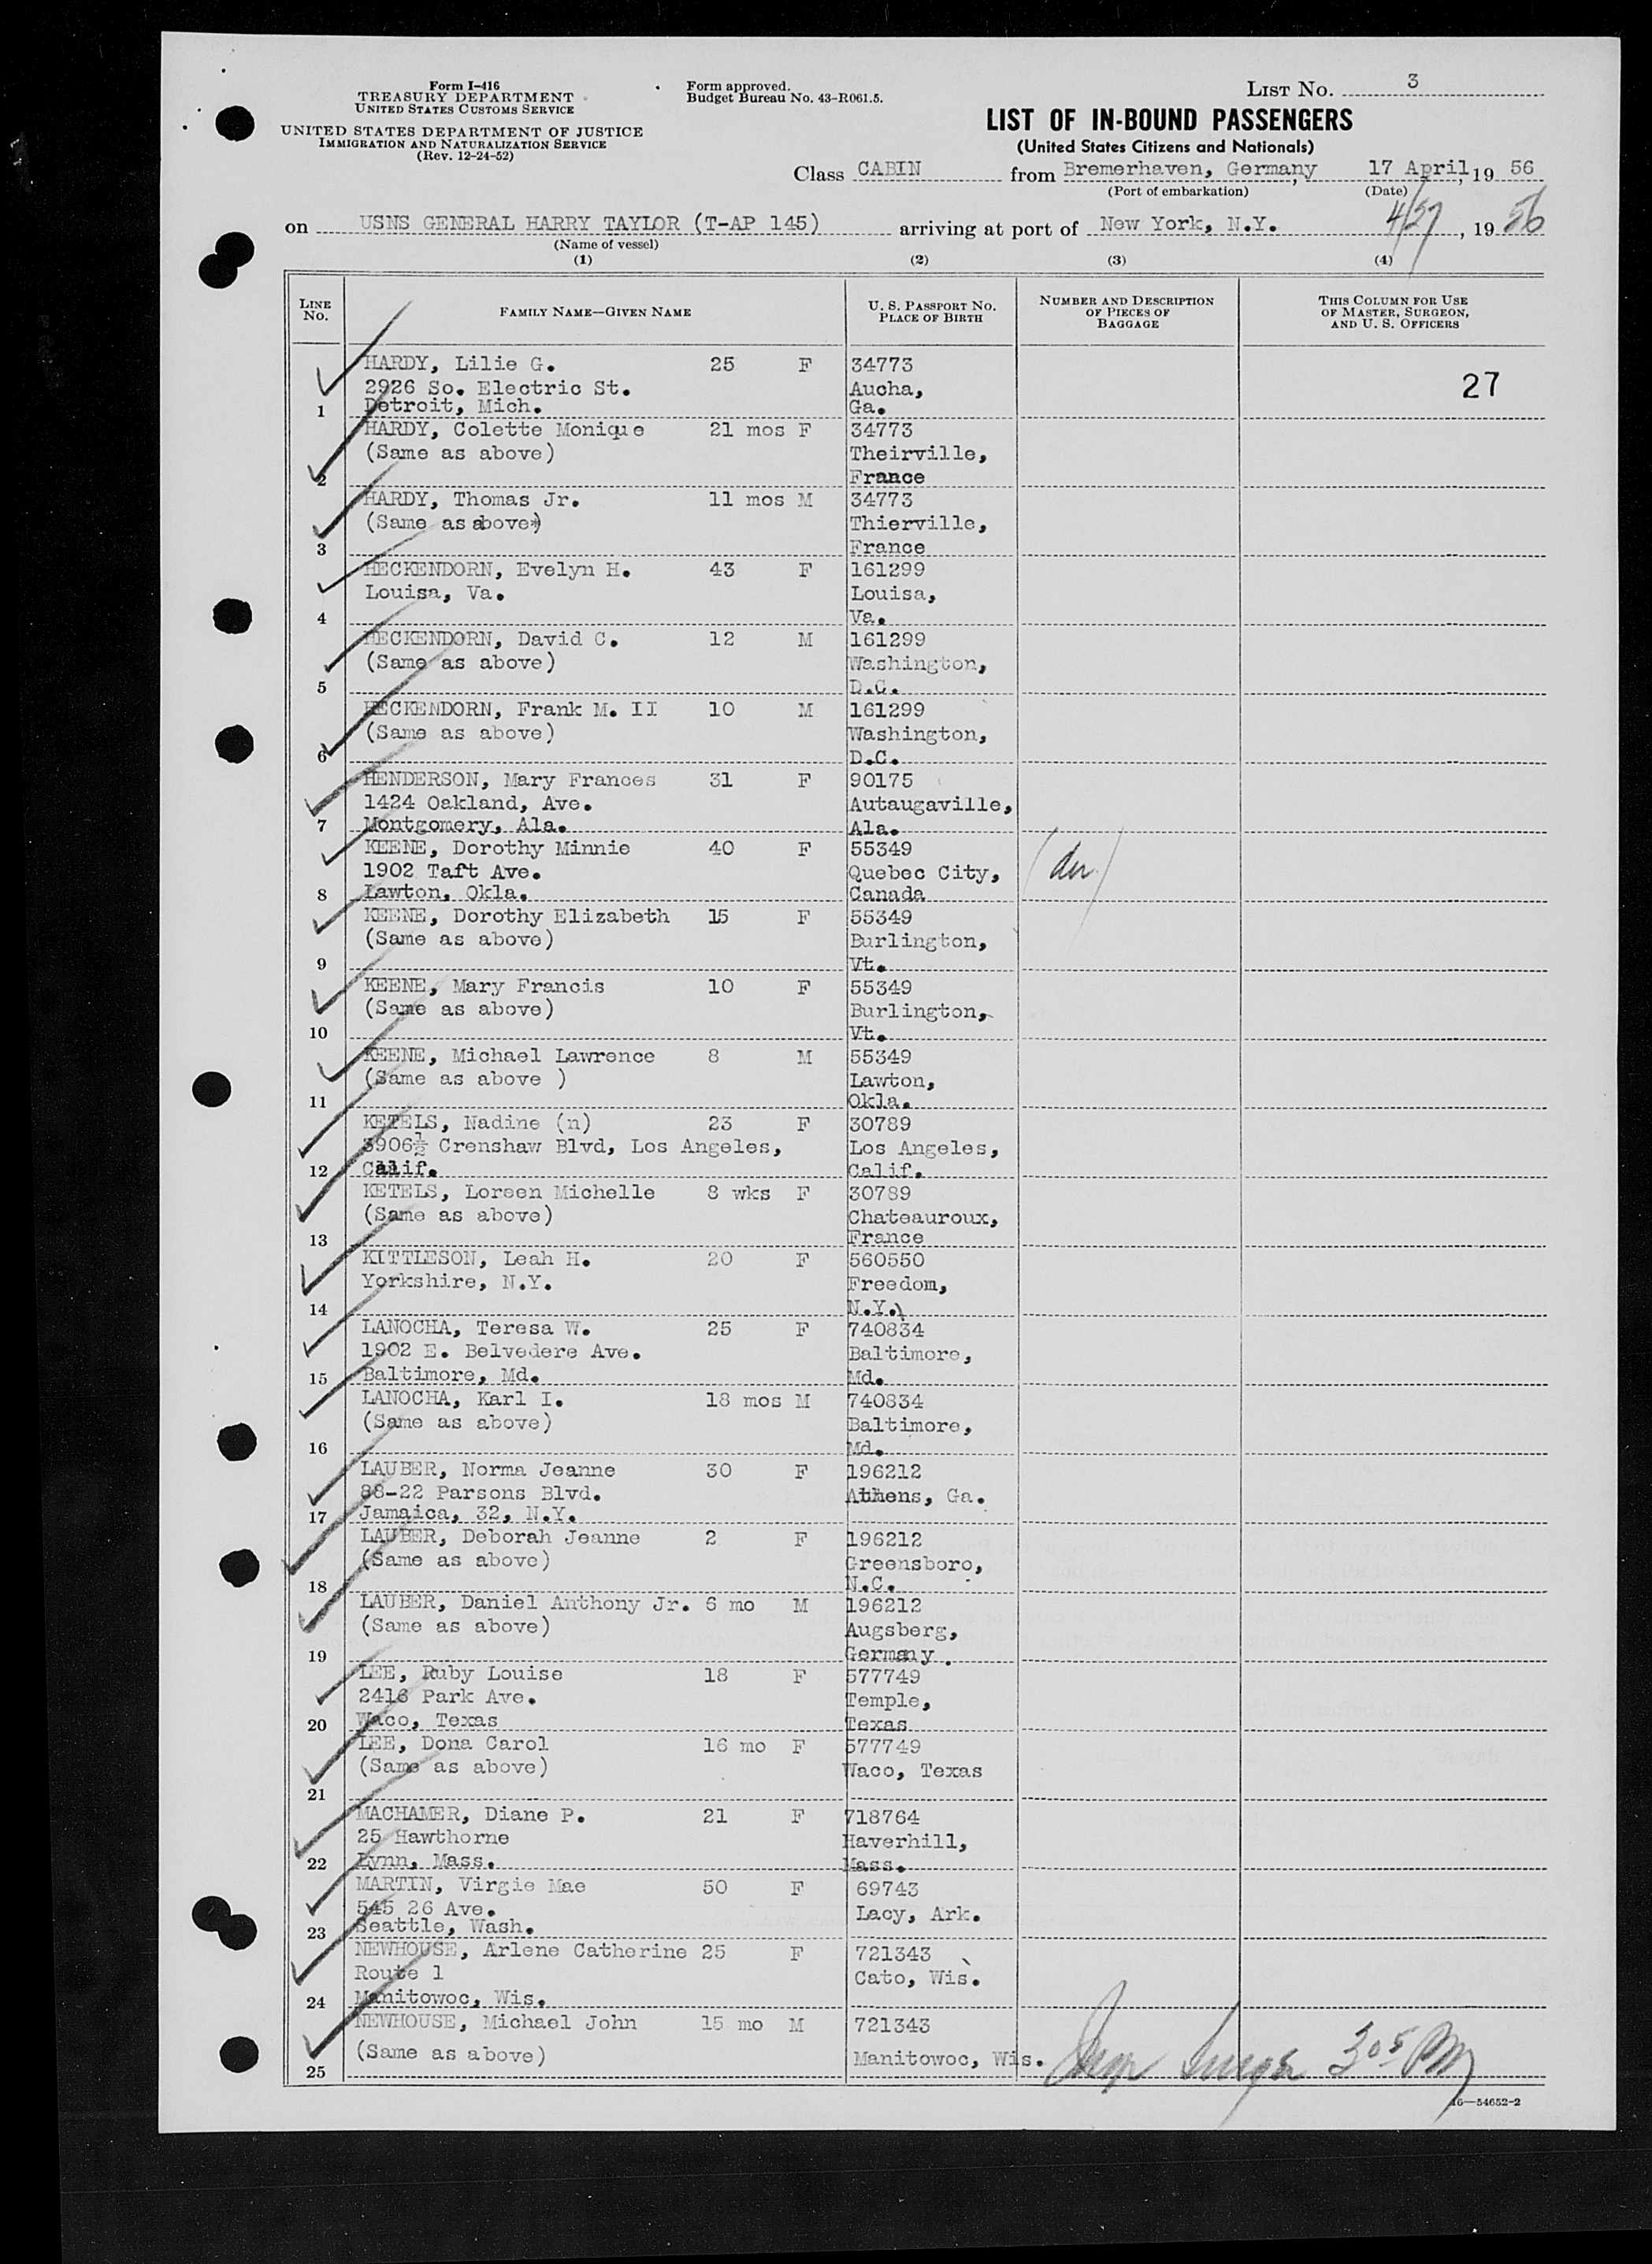 Form I-416
TREASURY DEPARTMENT
UNITED STATES CUSTOMS SERVICE
UNITED STATES DEPARTMENT OF JUSTICE
IMMIGRATION AND NATURALIZATION SERVICE
(Rev. 12-24-52)
Form approved.
Budget Bureau No. 43-R061.5.
LIST NO. 3
LIST OF IN-BOUND PASSENGERS
(United States Citizens and Nationals)
Class CABIN from Bremerhaven, Germany, 17 April, 19 56
(Port of embarkation) (Date)
on USNS GENERAL HARRY TAYLOR (T-AP 145) arriving at port of New York, N.Y. 4/27, 19 56
(Name of vessel)
(1) (2) (3) (4)
LINE NO. FAMILY NAME—GIVEN NAME U. S. PASSPORT NO. PLACE OF BIRTH NUMBER AND DESCRIPTION OF PIECES OF BAGGAGE THIS COLUMN FOR USE OF MASTER, SURGEON, AND U. S. OFFICERS
HARDY, Lilie G. 25 F 34773
2926 So. Electric St. Aucha, 27
1 Detroit, Mich. Ga.
HARDY, Colette Monique 21 mos F 34773
(Same as above) Theirville,
2 France
HARDY, Thomas Jr. 11 mos M 34773
(Same as above) Thierville,
3 France
HECKENDORN, Evelyn H. 43 F 161299
Louisa, Va. Louisa,
4 Va.
HECKENDORN, David C. 12 M 161299
(Same as above) Washington,
5 D.C.
HECKENDORN, Frank M. II 10 M 161299
(Same as above) Washington,
6 D.C.
HENDERSON, Mary Frances 31 F 90175
1424 Oakland, Ave. Autaugaville,
7 Montgomery, Ala. Ala.
KEENE, Dorothy Minnie 40 F 55349
1902 Taft Ave. Quebec City,
8 Lawton, Okla. Canada
KEENE, Dorothy Elizabeth 15 F 55349
(Same as above) Burlington,
9 Vt.
KEENE, Mary Francis 10 F 55349
(Same as above) Burlington,
10 Vt.
KEENE, Michael Lawrence 8 M 55349
(Same as above ) Lawton,
11 Okla.
KETELS, Nadine (n) 23 F 30789
3906½ Crenshaw Blvd, Los Angeles, Los Angeles,
12 Calif. Calif.
KETELS, Loreen Michelle 8 wks F 30789
(Same as above) Chateauroux,
13 France
KITTLESON, Leah H. 20 F 560550
Yorkshire, N.Y. Freedom,
14 N.Y.
LANOCHA, Teresa W. 25 F 740834
1902 E. Belvedere Ave. Baltimore,
15 Baltimore, Md. Md.
LANOCHA, Karl I. 18 mos M 740834
(Same as above) Baltimore,
16 Md.
LAUBER, Norma Jeanne 30 F 196212
88-22 Parsons Blvd. Athens, Ga.
17 Jamaica, 32, N.Y.
LAUBER, Deborah Jeanne 2 F 196212
(Same as above) Greensboro,
18 N.C.
LAUBER, Daniel Anthony Jr. 6 mo M 196212
(Same as above) Augsberg,
19 Germany
LEE, Ruby Louise 18 F 577749
2416 Park Ave. Temple,
20 Waco, Texas Texas
LEE, Dona Carol 16 mo F 577749
(Same as above) Waco, Texas
21
MACHAMER, Diane P. 21 F 718764
25 Hawthorne Haverhill,
22 Lynn, Mass. Mass.
MARTIN, Virgie Mae 50 F 69743
545 26 Ave. Lacy, Ark.
23 Seattle, Wash.
NEWHOUSE, Arlene Catherine 25 F 721343
Route 1 Cato, Wis.
24 Manitowoc, Wis.
NEWHOUSE, Michael John 15 mo M 721343
25 (Same as above) Manitowoc, Wis. 305 PM
16—54652-2